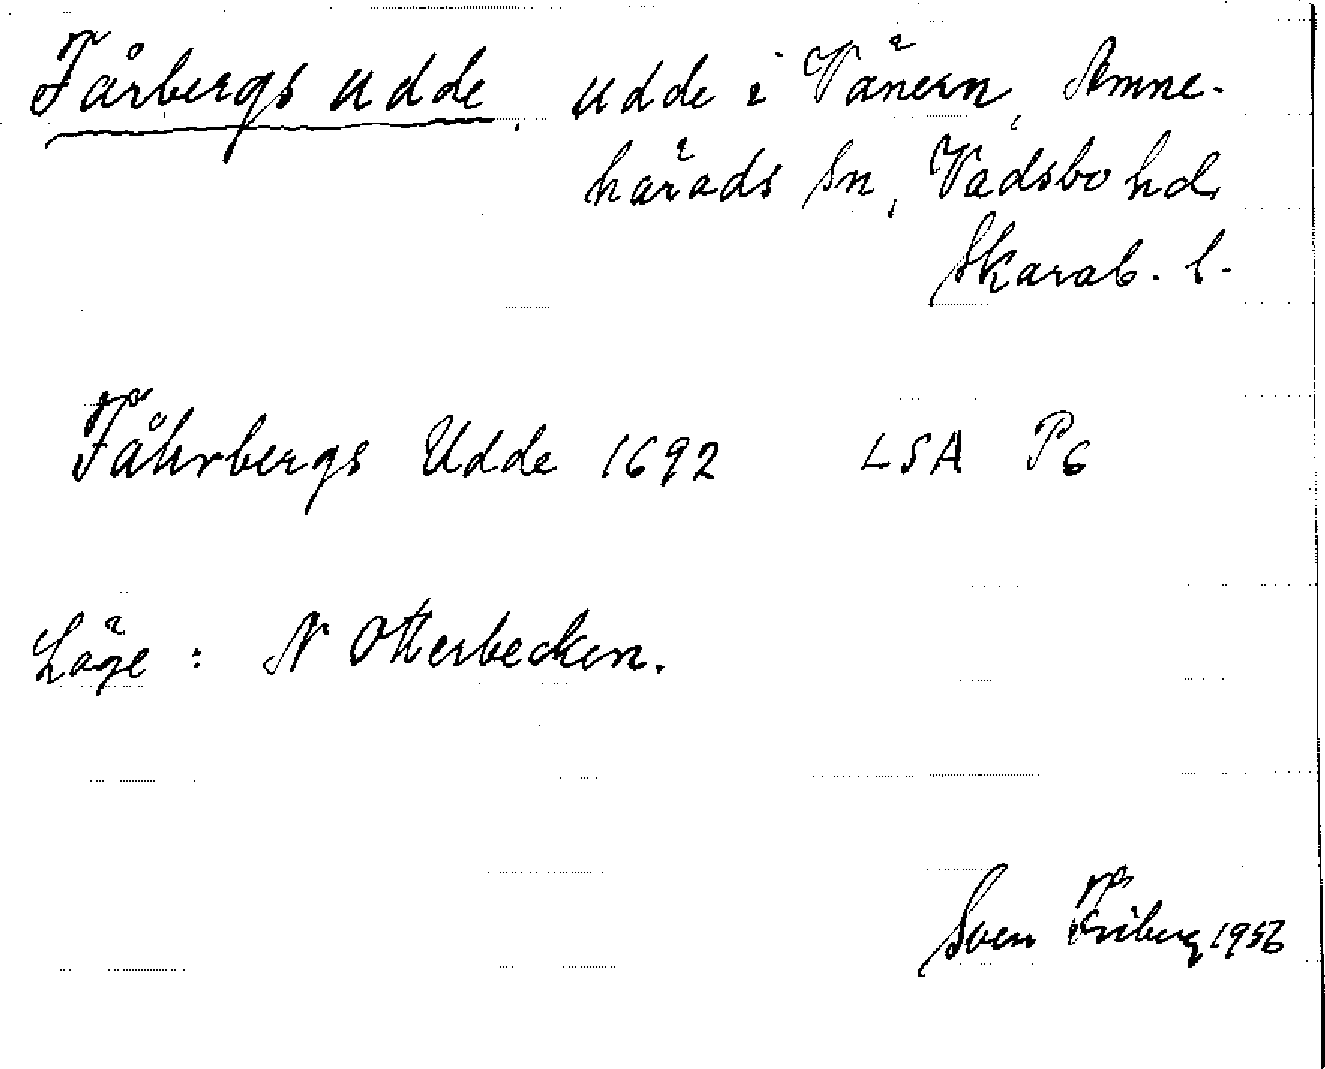 Fårbergs udde, udde i Vänern, Amne-
härads sn, Vadsbo hd,
Skarab. l.
Fåhrbergs Udde 1692 LSA P6
Läge: N Otterbecken.
Sven Friberg 1956